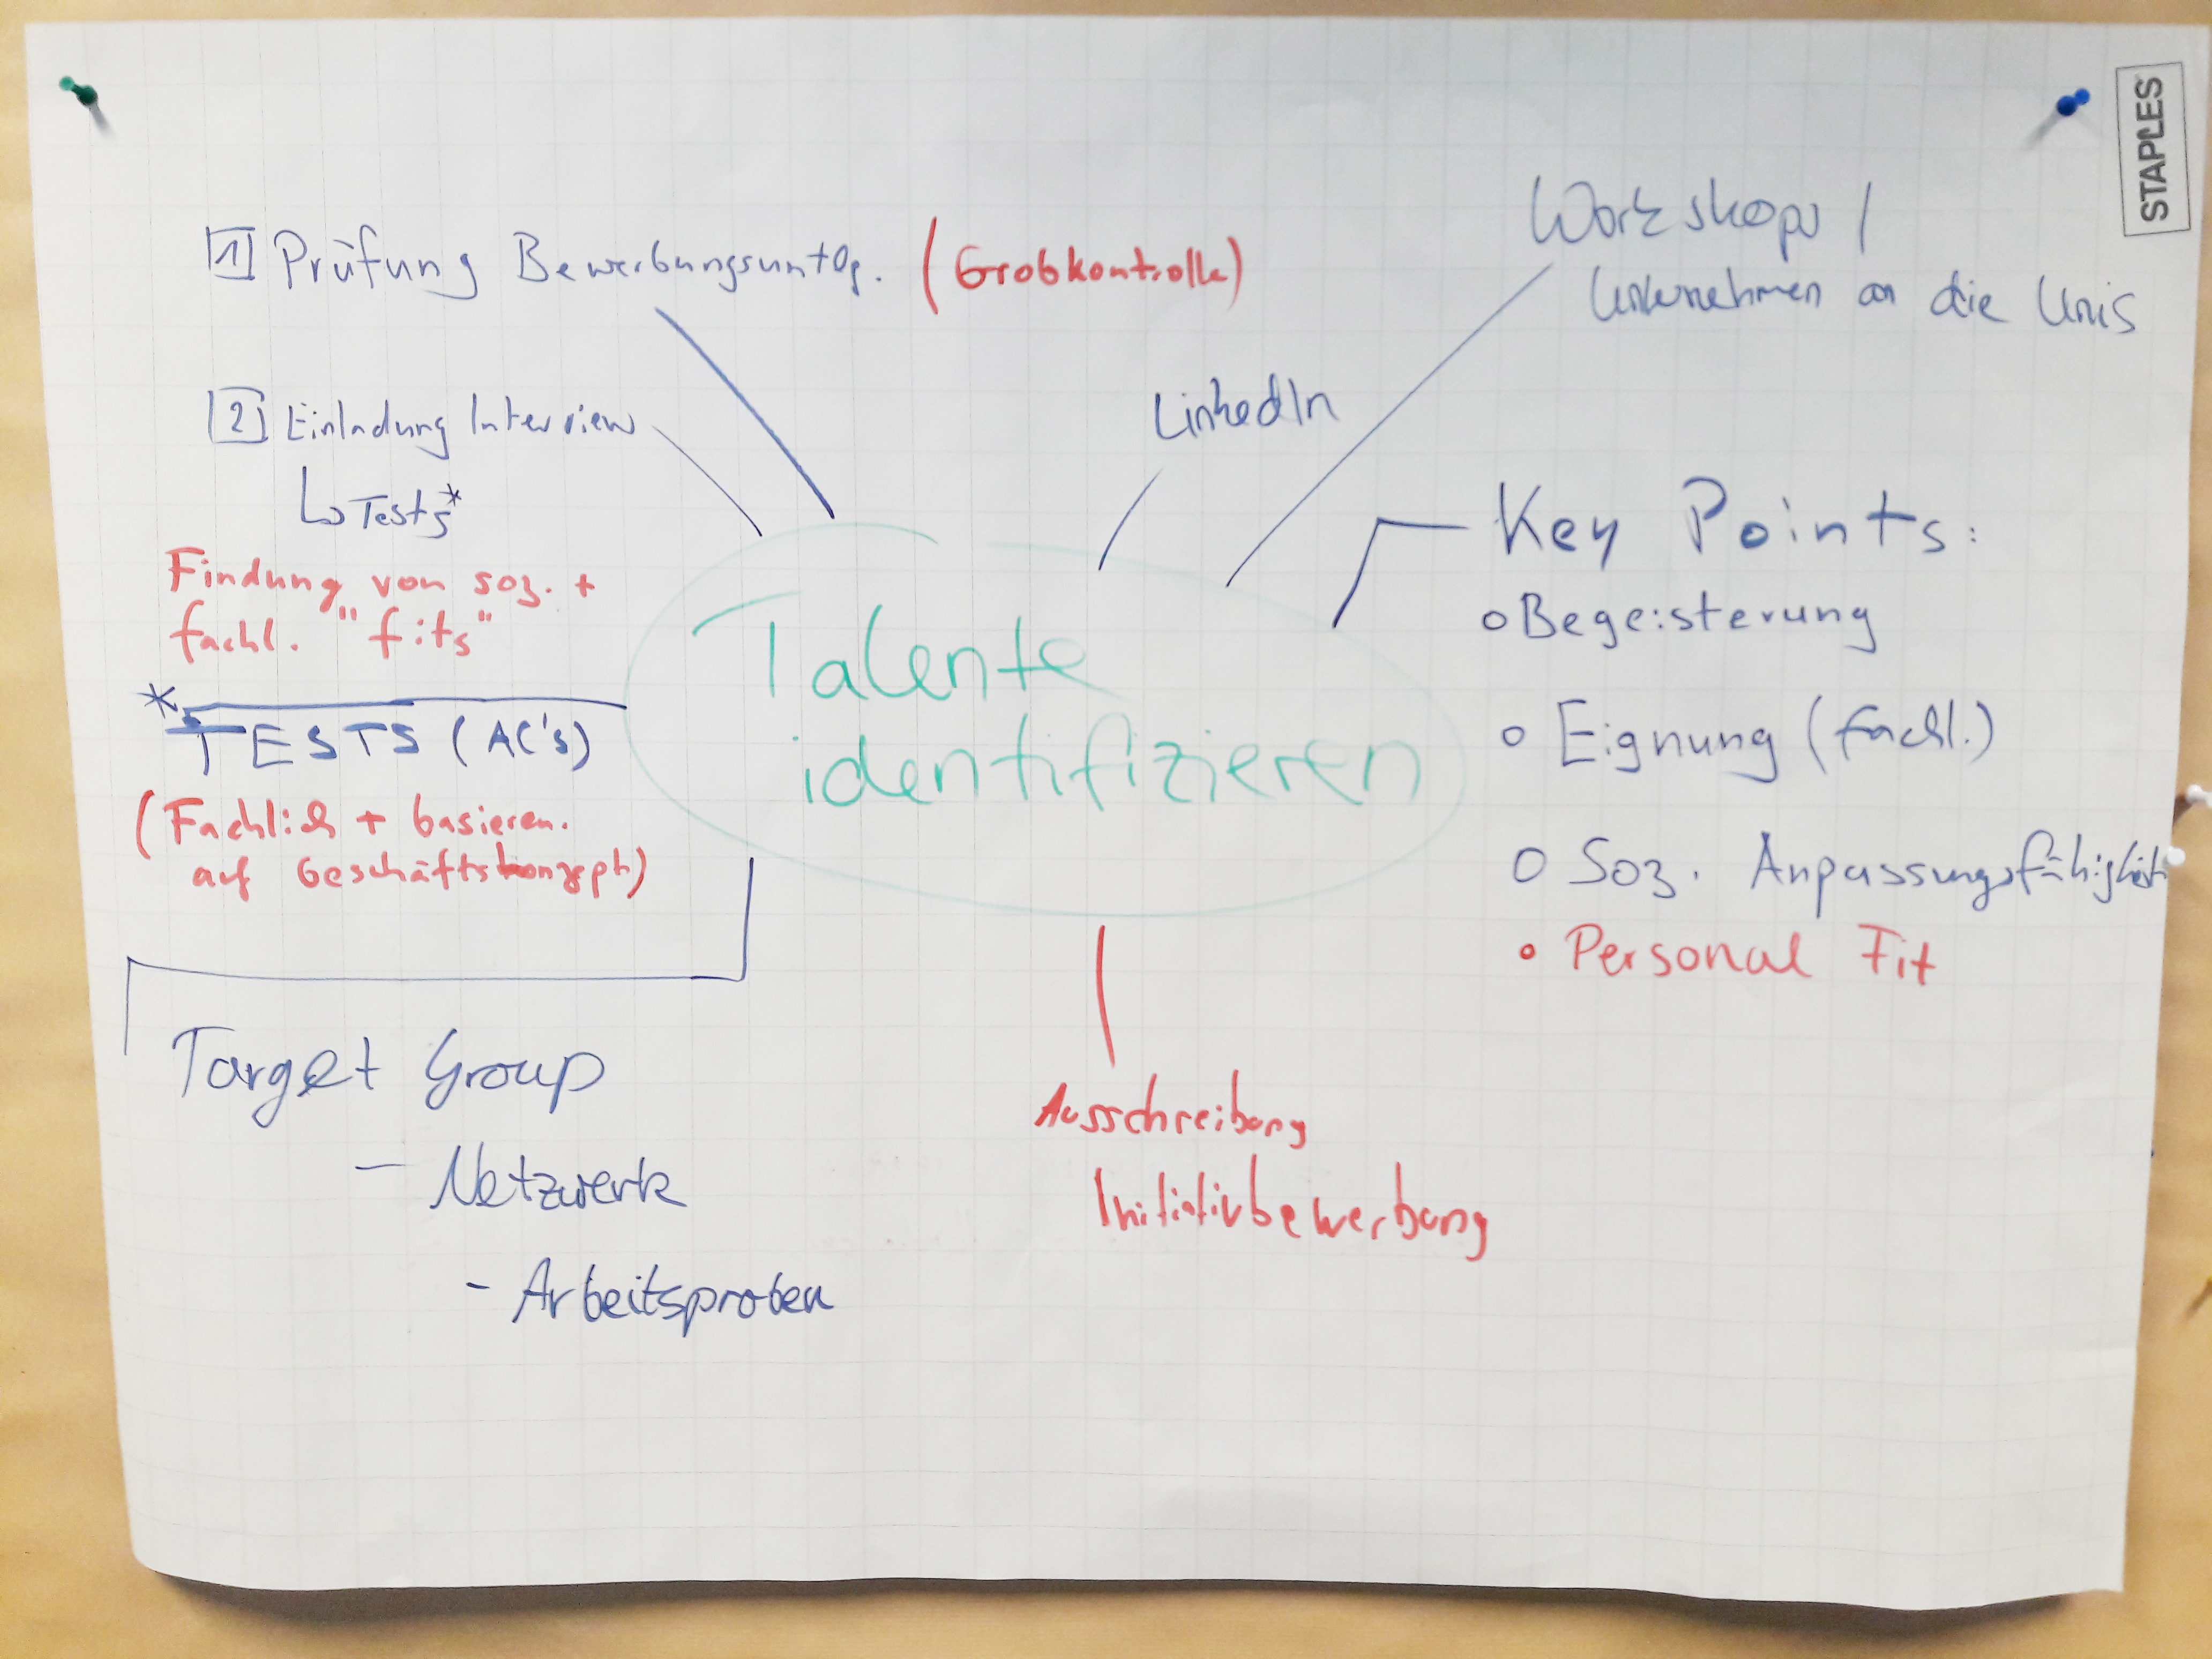 STAPLES
1 Prüfung Bewerbungsuntlg. (Grobkontrolle)
2 Einladung Interview
↳ Tests*
Findung von soz. +
fachl. "fits"
* TESTS (AC's)
(Fachlich + basieren.
auf Geschäftskonzept)
Target Group
- Netzwerk
- Arbeitsproben
Talente
identifizieren
LinkedIn
Workshops /
Unternehmen an die Unis
Key Points:
o Begeisterung
o Eignung (fachl.)
o Soz. Anpassungsfähigkeit
• Personal Fit
Ausschreibung
Initiativbewerbung